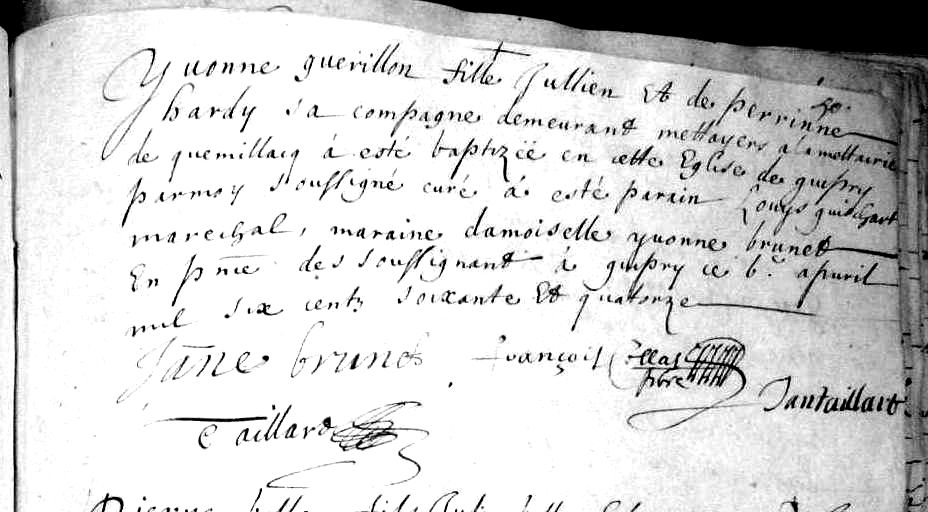 Yvonne guerillon fille Jullien Et de perrinne
hardy sa compagne demeurant mettayers a la mettairie
de quemillacq á esté baptizéé en cette Eglise de guipry
parmoy soussigné curé á esté parain Louys guischart
marechal, maraine damoiselle yvonne brunet
En pnce des soussignant á guipry ce 6.e apuril
mil six centz soixante Et quatorze
Janne brunet françois Collas pbre
Jan taillart
Taillard